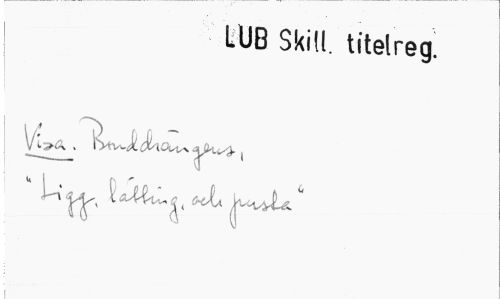 LUB Skill. titelreg.
Visa. Bonddrängens,
"Ligg, lätting, och pusta"